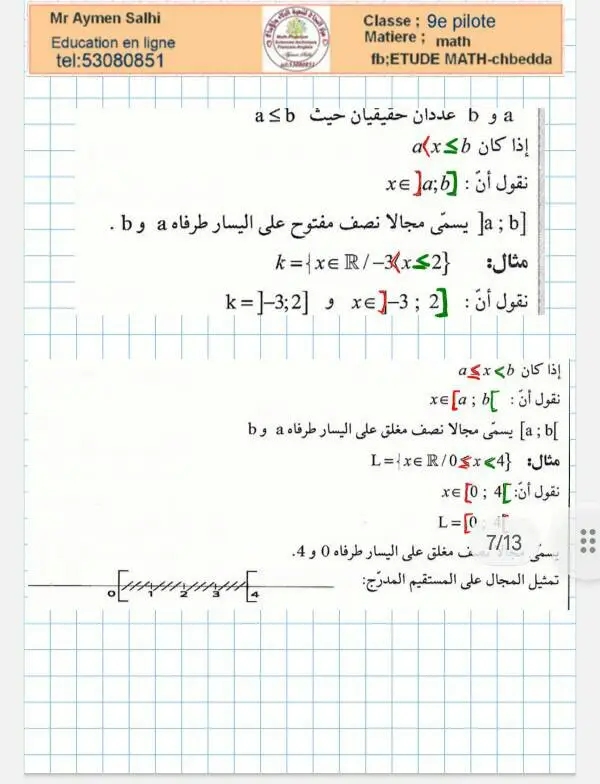 Mr Aymen Salhi
Education en ligne
tel:53080851
Classe ; 9e pilote
Matiere ; math
fb;ETUDE MATH-chbedda
a و b عددان حقيقيان حيث a ≤ b
إذا كان a < x ≤ b
نقول أنّ : x ∈ ]a;b]
]a ; b] يسمّى مجالا نصف مفتوح على اليسار طرفاه a و b .
مثال: k = {x ∈ ℝ / −3 < x ≤ 2}
نقول أنّ : x ∈ ]−3 ; 2] و k = ]−3;2]
إذا كان a ≤ x < b
نقول أنّ : x ∈ [a ; b[
[a ; b[ يسمّى مجالا نصف مغلق على اليسار طرفاه a و b
مثال: L = {x ∈ ℝ / 0 ≤ x < 4}
نقول أنّ: x ∈ [0 ; 4[
L = [0 ; 4[
7/13
يسمّى مجالا نصف مغلق على اليسار طرفاه 0 و 4.
تمثيل المجال على المستقيم المدرّج:
0 1 2 3 4